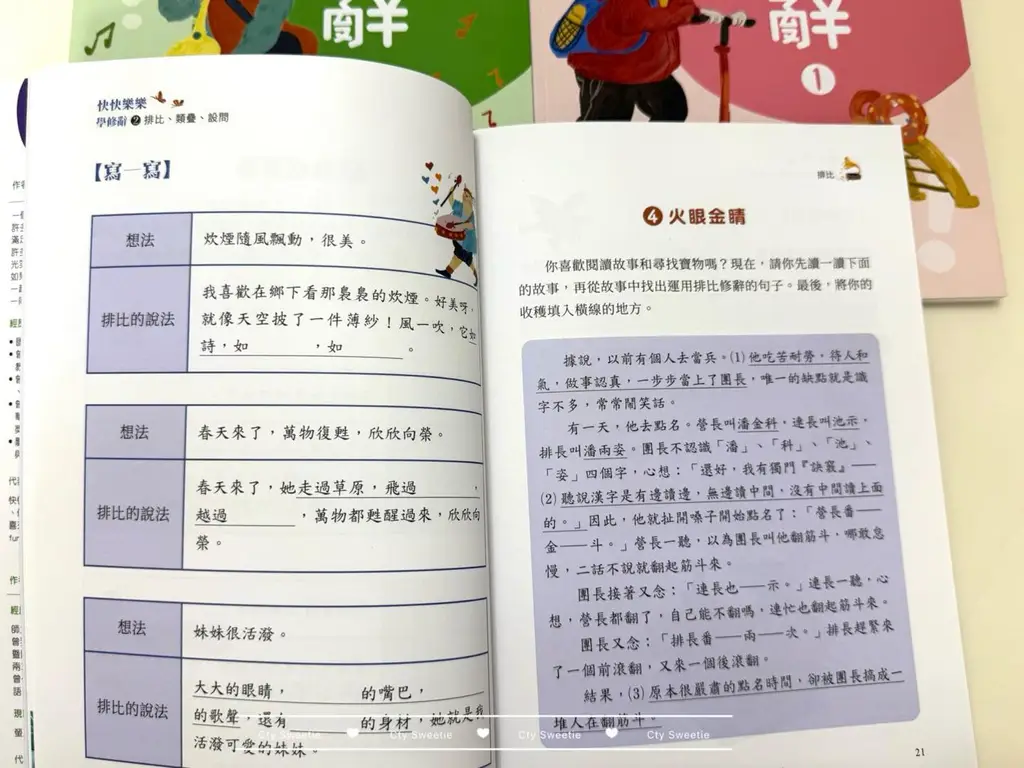 辭
辭
1
快快樂樂
學修辭 2 排比、類疊、設問
【寫一寫】
想法
炊煙隨風飄動，很美。
排比的說法
我喜歡在鄉下看那裊裊的炊煙。好美呀，
就像天空披了一件薄紗！風一吹，它如
詩，如　　　，如　　　。
想法
春天來了，萬物復甦，欣欣向榮。
排比的說法
春天來了，她走過草原，飛過　　　，
越過　　　，萬物都甦醒過來，欣欣向
榮。
想法
妹妹很活潑。
排比的說法
大大的眼睛，　　　的嘴巴，
的歌聲，還有　　　的身材，她就是我
活潑可愛的妹妹。
排比
4 火眼金睛
你喜歡閱讀故事和尋找寶物嗎？現在，請你先讀一讀下面
的故事，再從故事中找出運用排比修辭的句子。最後，將你的
收穫填入橫線的地方。
據說，以前有個人去當兵。(1) 他吃苦耐勞，待人和
氣，做事認真，一步步當上了團長，唯一的缺點就是識
字不多，常常鬧笑話。
有一天，他去點名。營長叫潘金科，連長叫池示，
排長叫潘兩姿。團長不認識「潘」、「科」、「池」、
「姿」四個字，心想：「還好，我有獨門『訣竅』——
(2) 聽說漢字是有邊讀邊，無邊讀中間，沒有中間讀上面
的。」因此，他就扯開嗓子開始點名了：「營長番——
金——斗。」營長一聽，以為團長叫他翻筋斗，哪敢怠
慢，二話不說就翻起筋斗來。
團長接著又念：「連長也——示。」連長一聽，心
想，營長都翻了，自己能不翻嗎，連忙也翻起筋斗來。
團長又念：「排長番——兩——次。」排長趕緊來
了一個前滾翻，又來一個後滾翻。
結果，(3) 原本很嚴肅的點名時間，卻被團長搞成一
堆人在翻筋斗。
21
Cty Sweetie
Cty Sweetie
Cty Sweetie